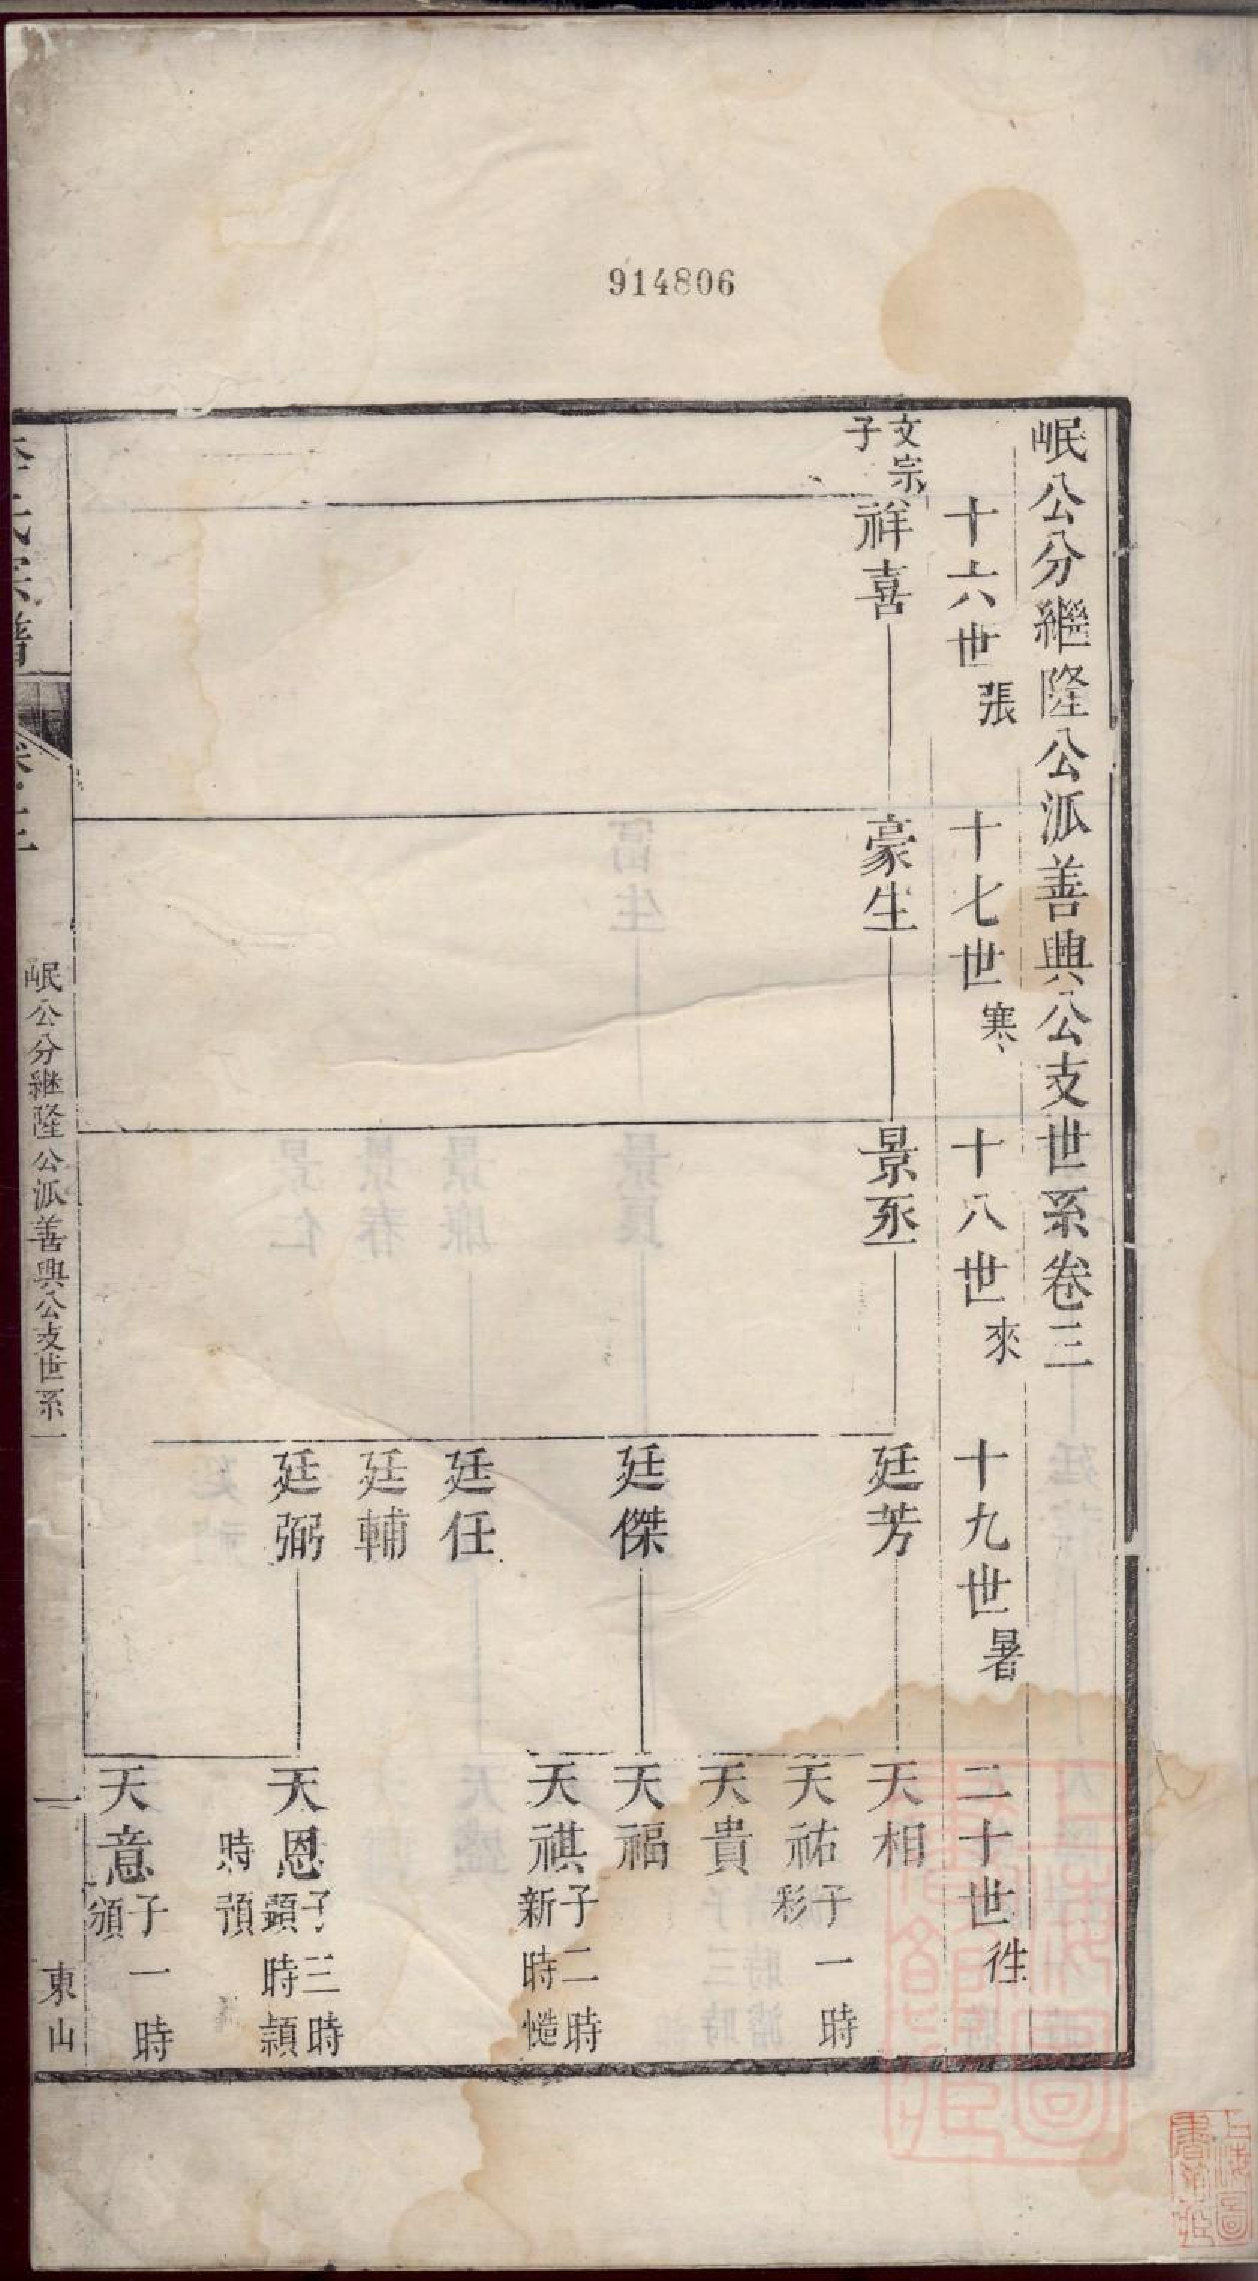 914806
岷公分繼隆公派善興公支世系卷三
十六世張
十七世寒
十八世來
十九世暑
二十世徃
文宗子
祥喜
豪生
景丞
廷芳
天相
天祐 子一時彩
天貴
廷傑
天福
天祺 子二時新時慥
廷任
廷輔
廷弼
天恩 子三時顯時頴時預
天意 子一時頒
岷公分継隆公派善興公支世系
一
東山
上海圖書館藏